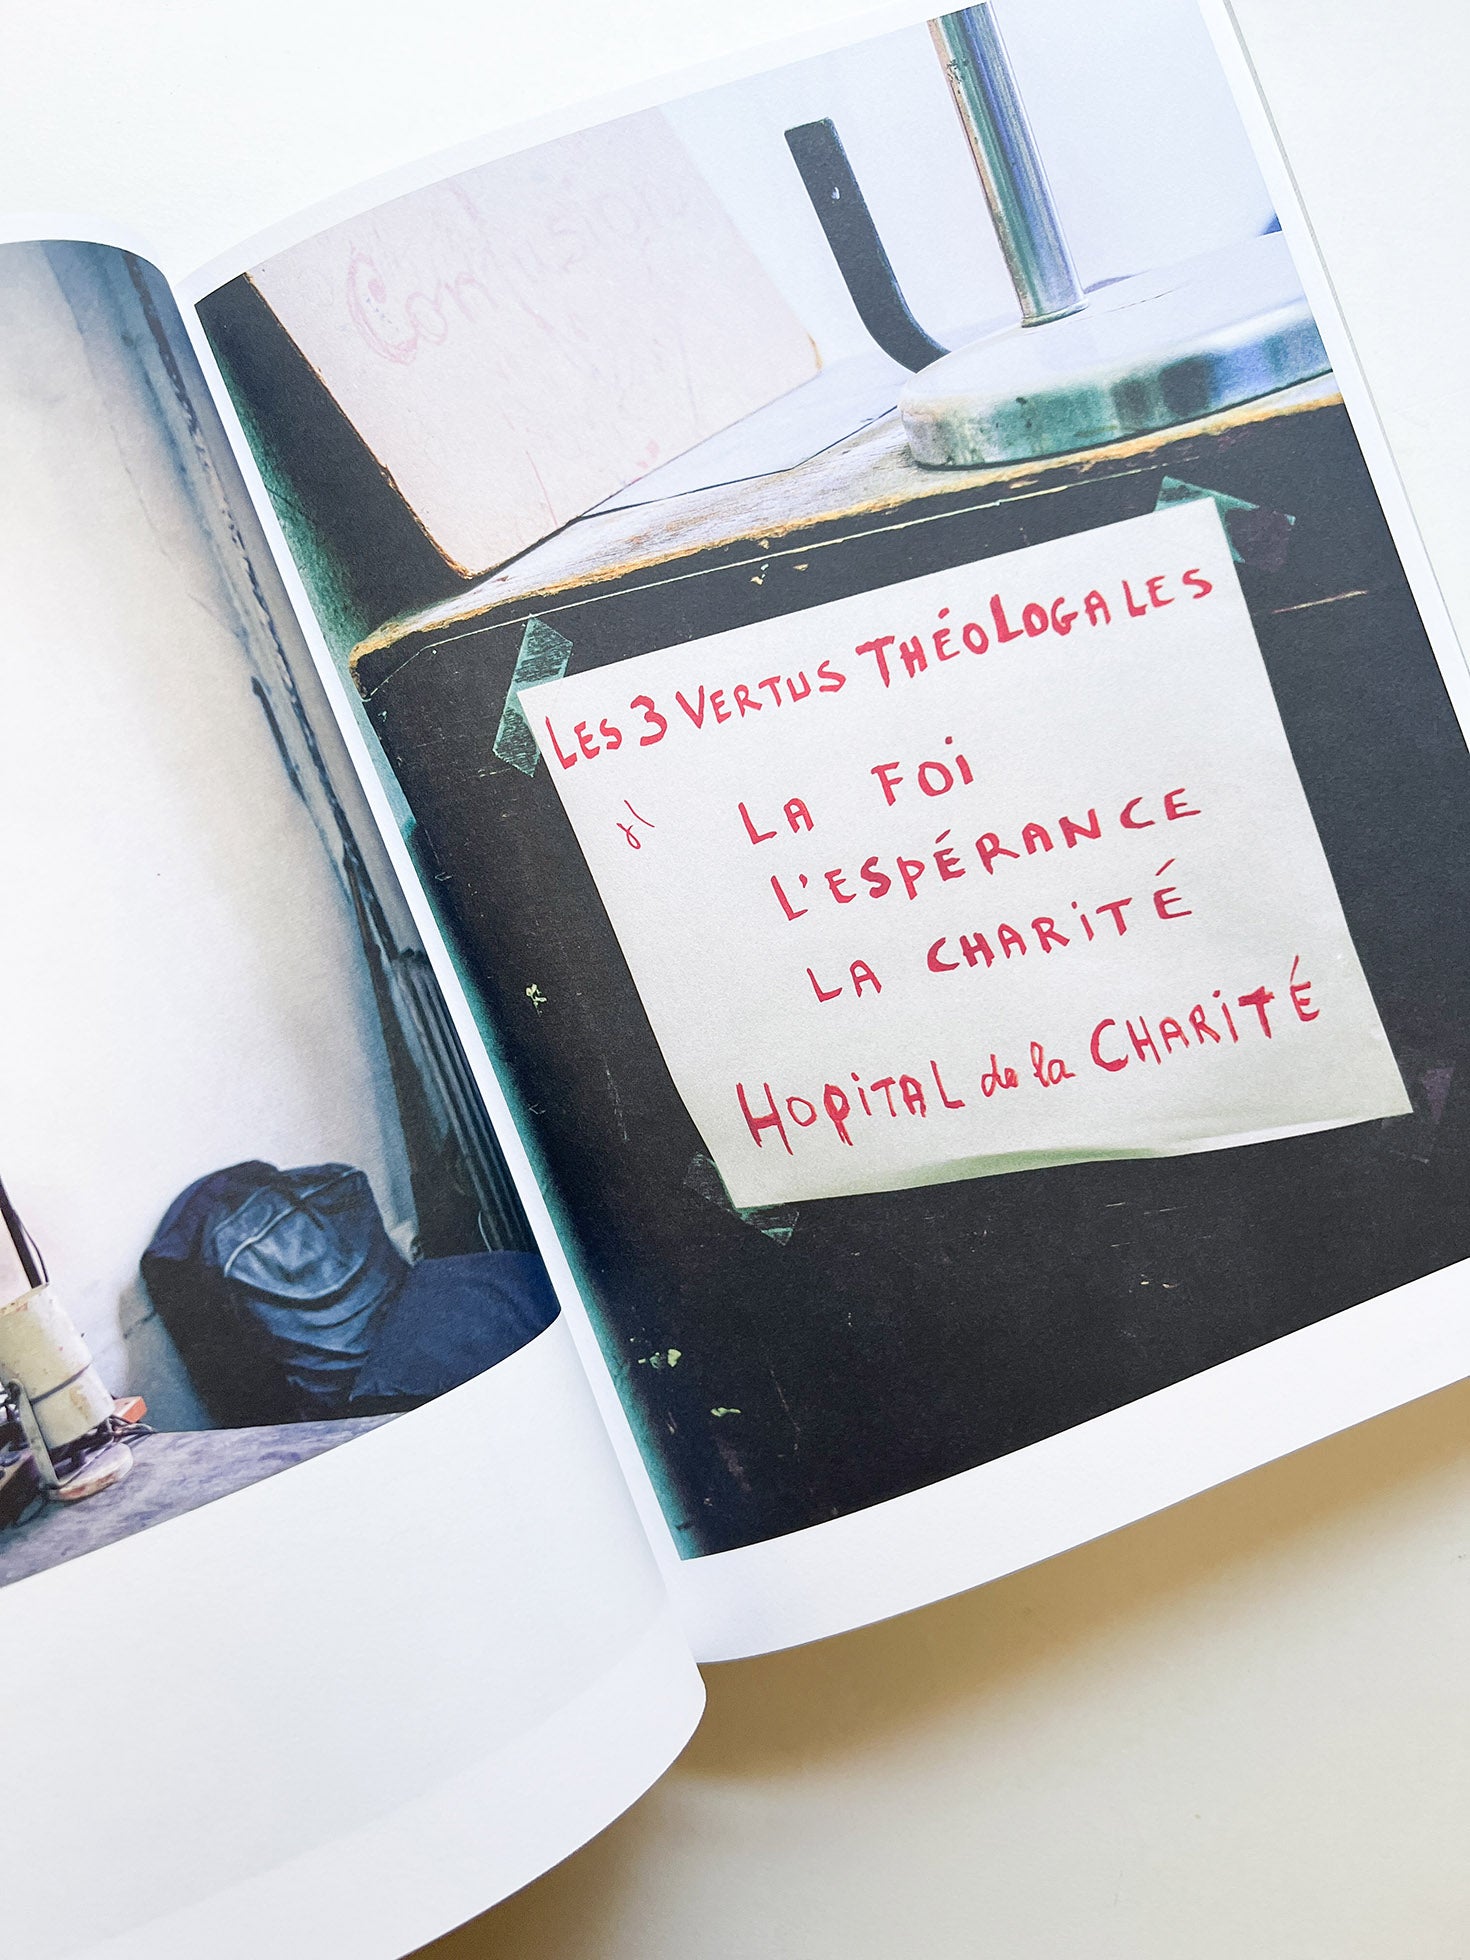 Confusions
LES 3 VERTUS THÉOLOGALES
LA FOi
L'ESPÉRANCE
LA CHARiTÉ
HOPiTAL de la CHARiTÉ